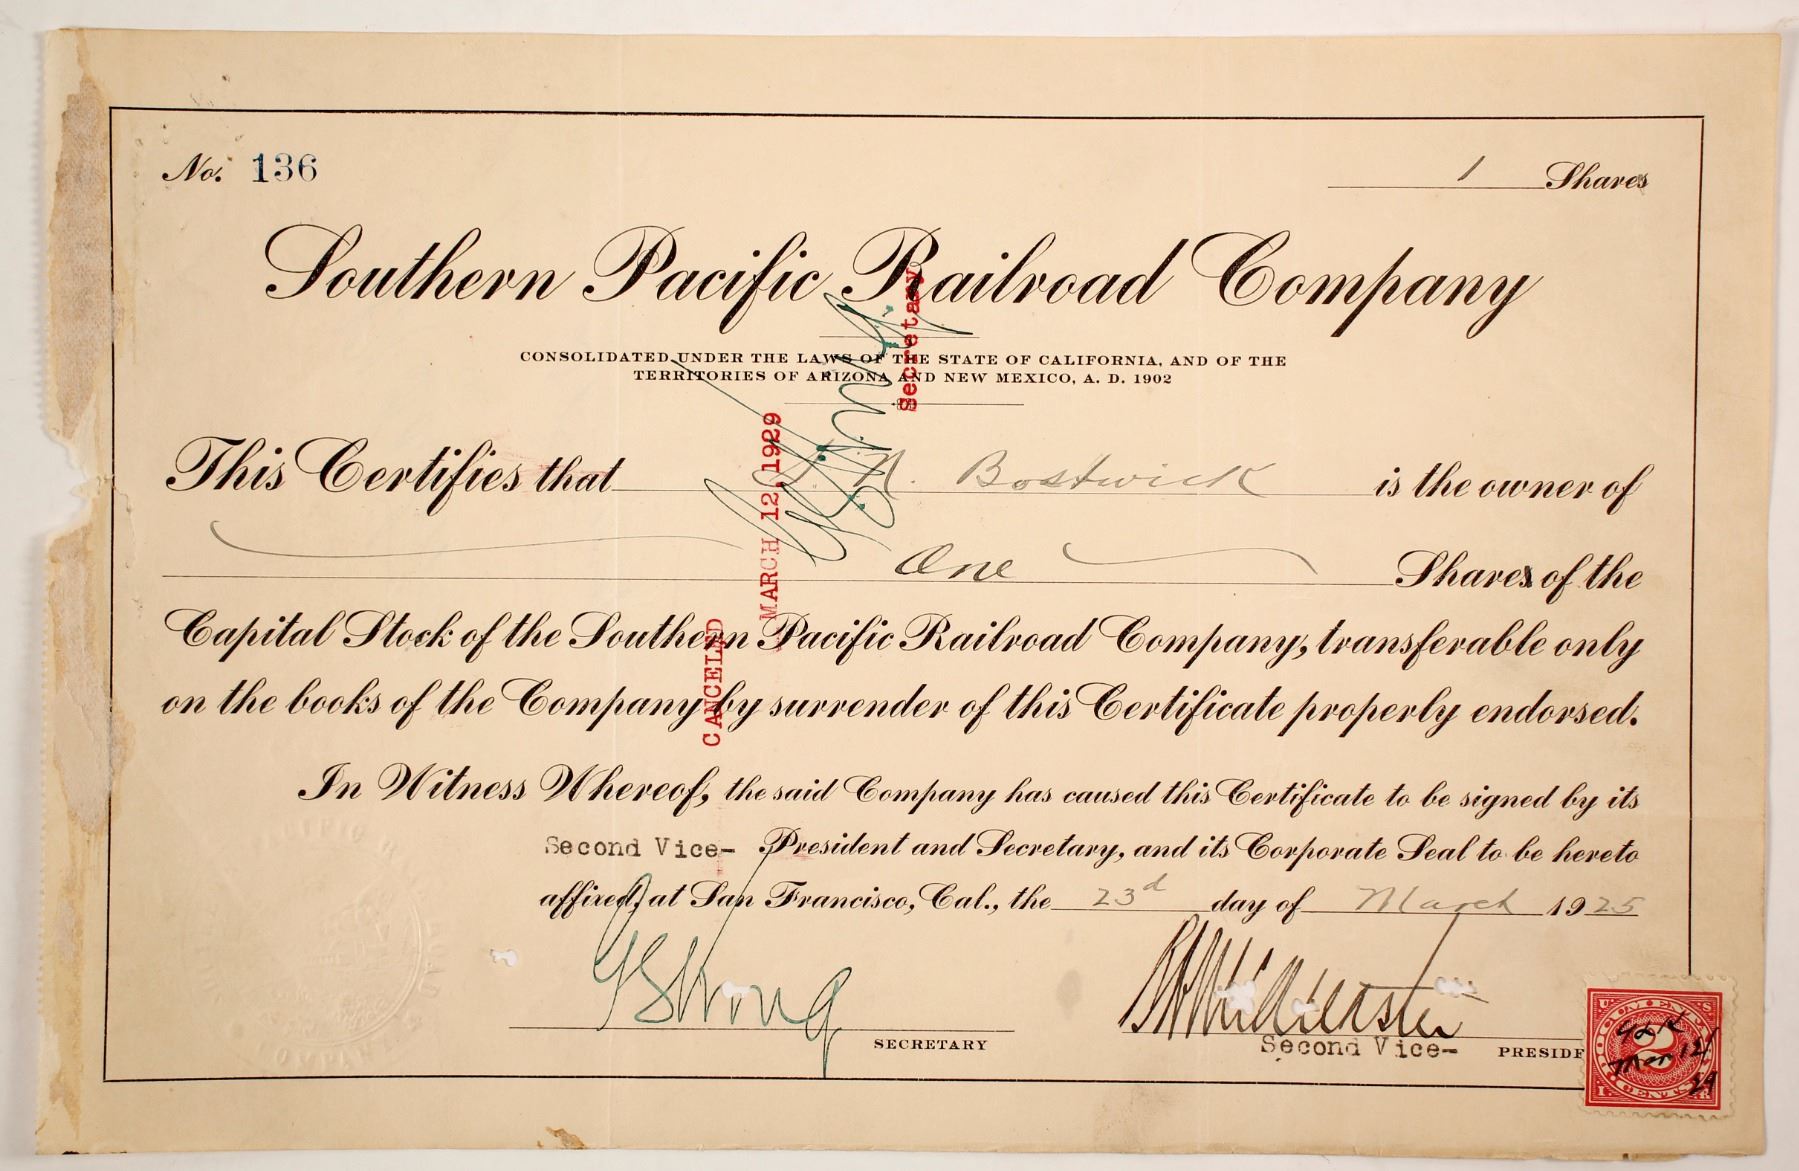 No. 136
1 Shares
Southern Pacific Railroad Company
CONSOLIDATED UNDER THE LAWS OF THE STATE OF CALIFORNIA, AND OF THE
TERRITORIES OF ARIZONA AND NEW MEXICO, A. D. 1902
This Certifies that N. Bostwick is the owner of
One Shares of the
Capital Stock of the Southern Pacific Railroad Company, transferable only
on the books of the Company by surrender of this Certificate properly endorsed.
CANCELED
MARCH 12, 1929
G L King
Secretary
In Witness Whereof, the said Company has caused this Certificate to be signed by its
Second Vice- President and Secretary, and its Corporate Seal to be hereto
affixed, at San Francisco, Cal., the 23d day of March 1925
SECRETARY
Second Vice- PRESIDE
U. S.
DOCUMENTARY
2
Mar 12/
29
CENTS
I. R.